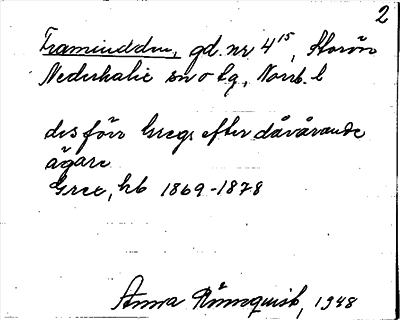 2
Framudden, gd. nr 4¹⁵, Storön
Nederkalix sn o tg, Norrb. l
dessför. Gregs efter dåvarande
ägare
Greg, hb 1869-1878
Anna Rönnquist, 1948